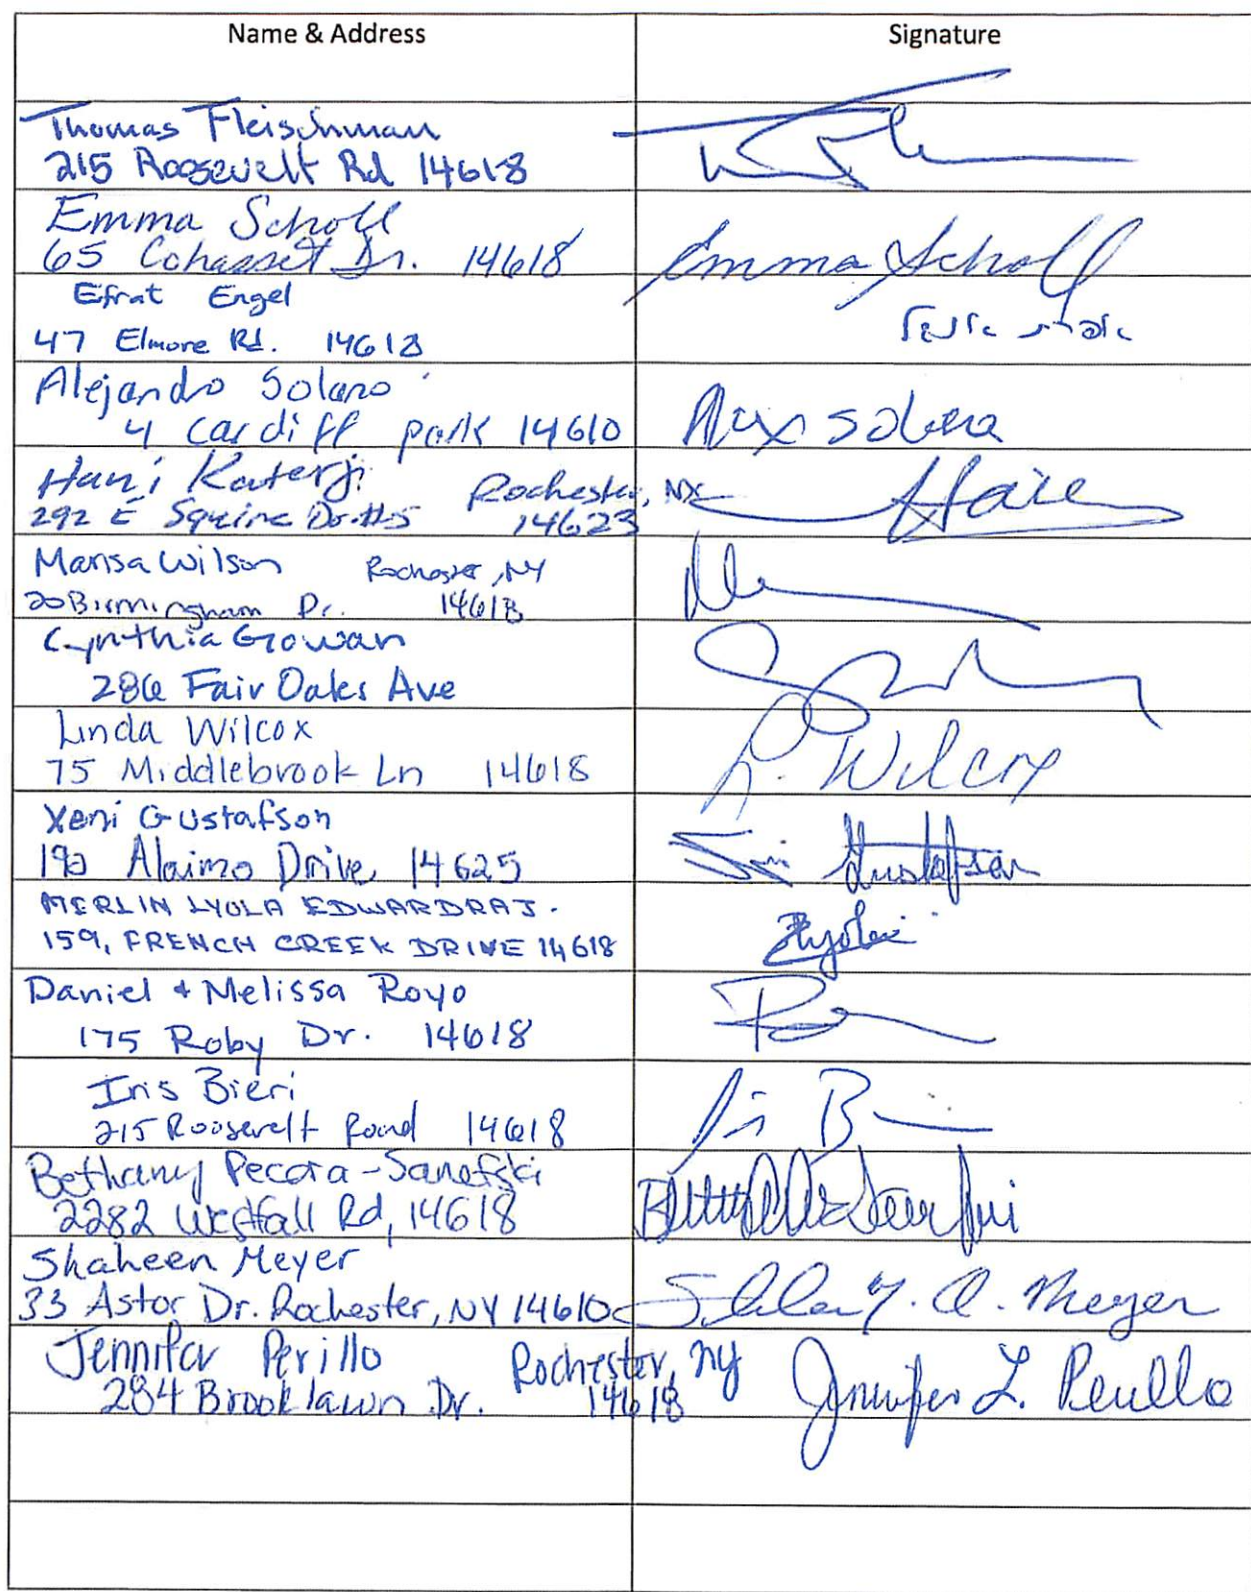 Name & Address
Signature
Thomas Fleischman
215 Roosevelt Rd 14618
Emma Scholl
65 Cohasset Dr. 14618
Emma Scholl
Efrat Engel
47 Elmore Rd. 14618
Alejandro Solano
4 cardiff park 14610
Hani Katerji
Rochester, NY
292 E Squire Dr. #5
14623
Marisa Wilson
Rochester, NY
20 Birmingham Dr.
14618
Cynthia Gowan
286 Fair Oaks Ave
Linda Wilcox
75 Middlebrook Ln 14618
L. Wilcox
Xeni Gustafson
Alaimo Drive 14625
Gustafson
MERLIN LYOLA EDWARDRAJ.
159, FRENCH CREEK DRIVE 14618
Daniel + Melissa Royo
175 Roby Dr. 14618
Iris Bieri
215 Roosevelt Road 14618
Bethany Pecora-Sanefski
2282 Westfall Rd, 14618
Shaheen Meyer
33 Astor Dr. Rochester, NY 14610
Meyer
Jennifer Perillo
Rochester, NY
284 Brooklawn Dr.
14618
Jennifer L. Perillo